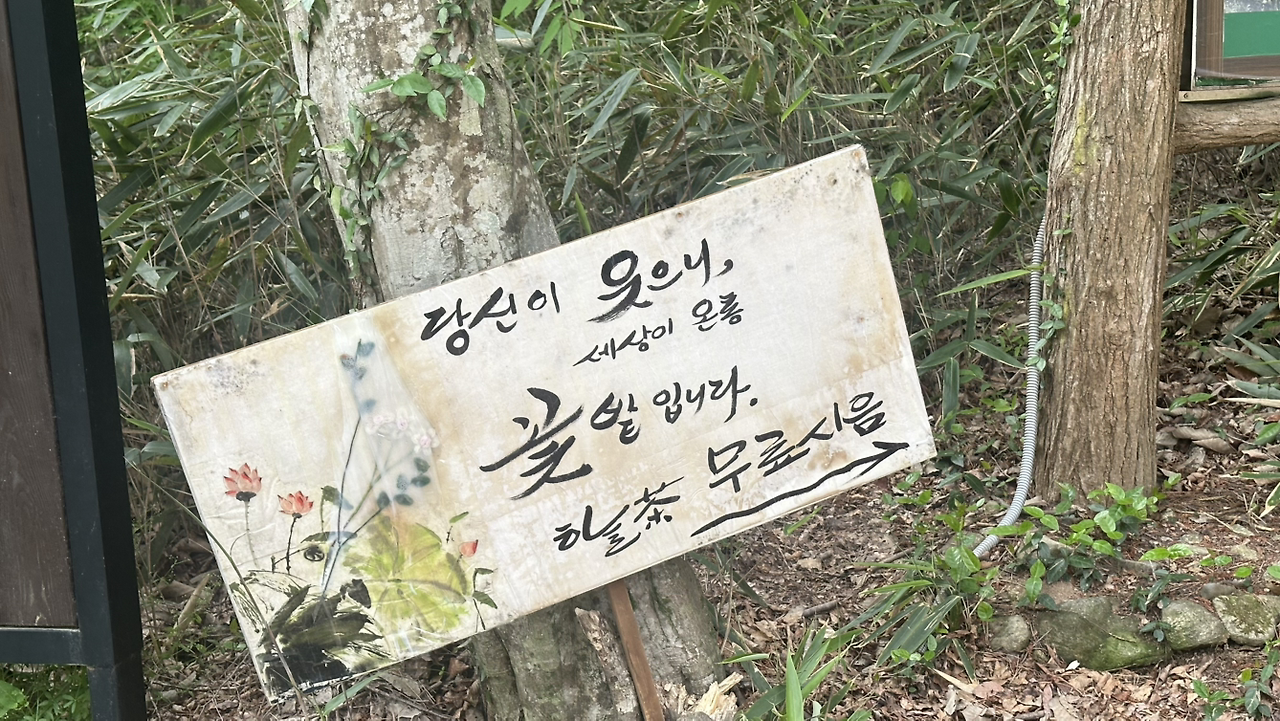 당신이 웃으니,
세상이 온통
꽃밭입니다.
하늘茶 무료시음